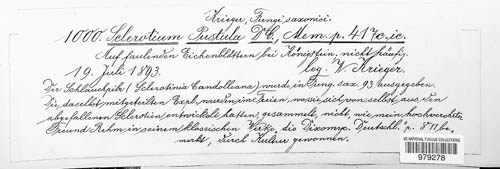 Krieger, Fungi saxonici.
1000. Sclerotium Pustula DC, Mem. p. 417c.ic.
Auf faulenden Eichenblättern bei Königstein, nicht häufig.
19. Juli 1893. leg. W. Krieger.
Der Schlauchpilz (Sclerotinia Candolleana) wurde in Fung. sax. 93 ausgegeben.
Die daselbst mitgeteilten Expl. wurden im Freien, wo sie sich von selbst aus den
abgefallenen Sclerotien entwickelt hatten, gesammelt, nicht, wie mein hochverehrter
Freund Rehm in seinem klassischen Werke, die Discomyc. Deutschl. p. 811 be,
merkt, durch Kultur gewonnen.
US NATIONAL FUNGUS COLLECTIONS
979278